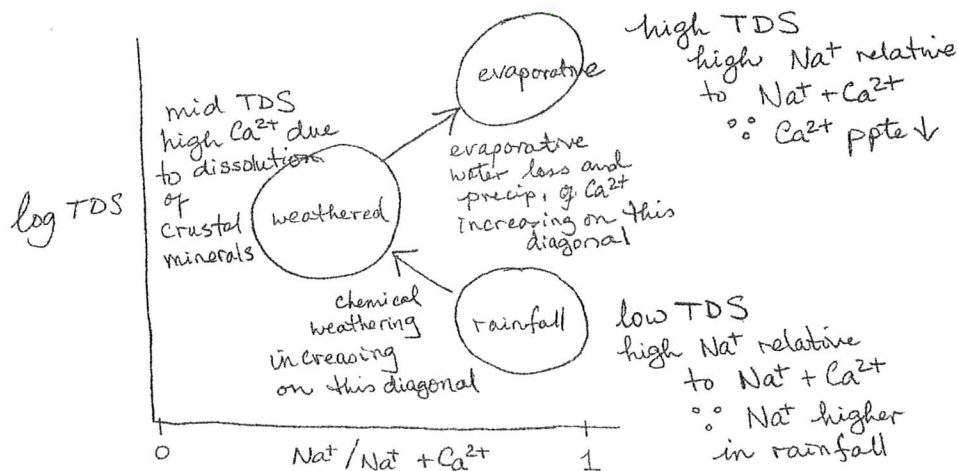 high TDS
high Na⁺ relative
to Na⁺ + Ca²⁺
∵ Ca²⁺ ppte ↓
evaporative
mid TDS
high Ca²⁺ due
to dissolution
of
crustal
minerals
evaporative
water loss and
precip. of Ca²⁺
increasing on this
diagonal
log TDS
weathered
chemical
weathering
increasing
on this diagonal
rainfall
low TDS
high Na⁺ relative
to Na⁺ + Ca²⁺
∵ Na⁺ higher
in rainfall
0
Na⁺/Na⁺ + Ca²⁺
1